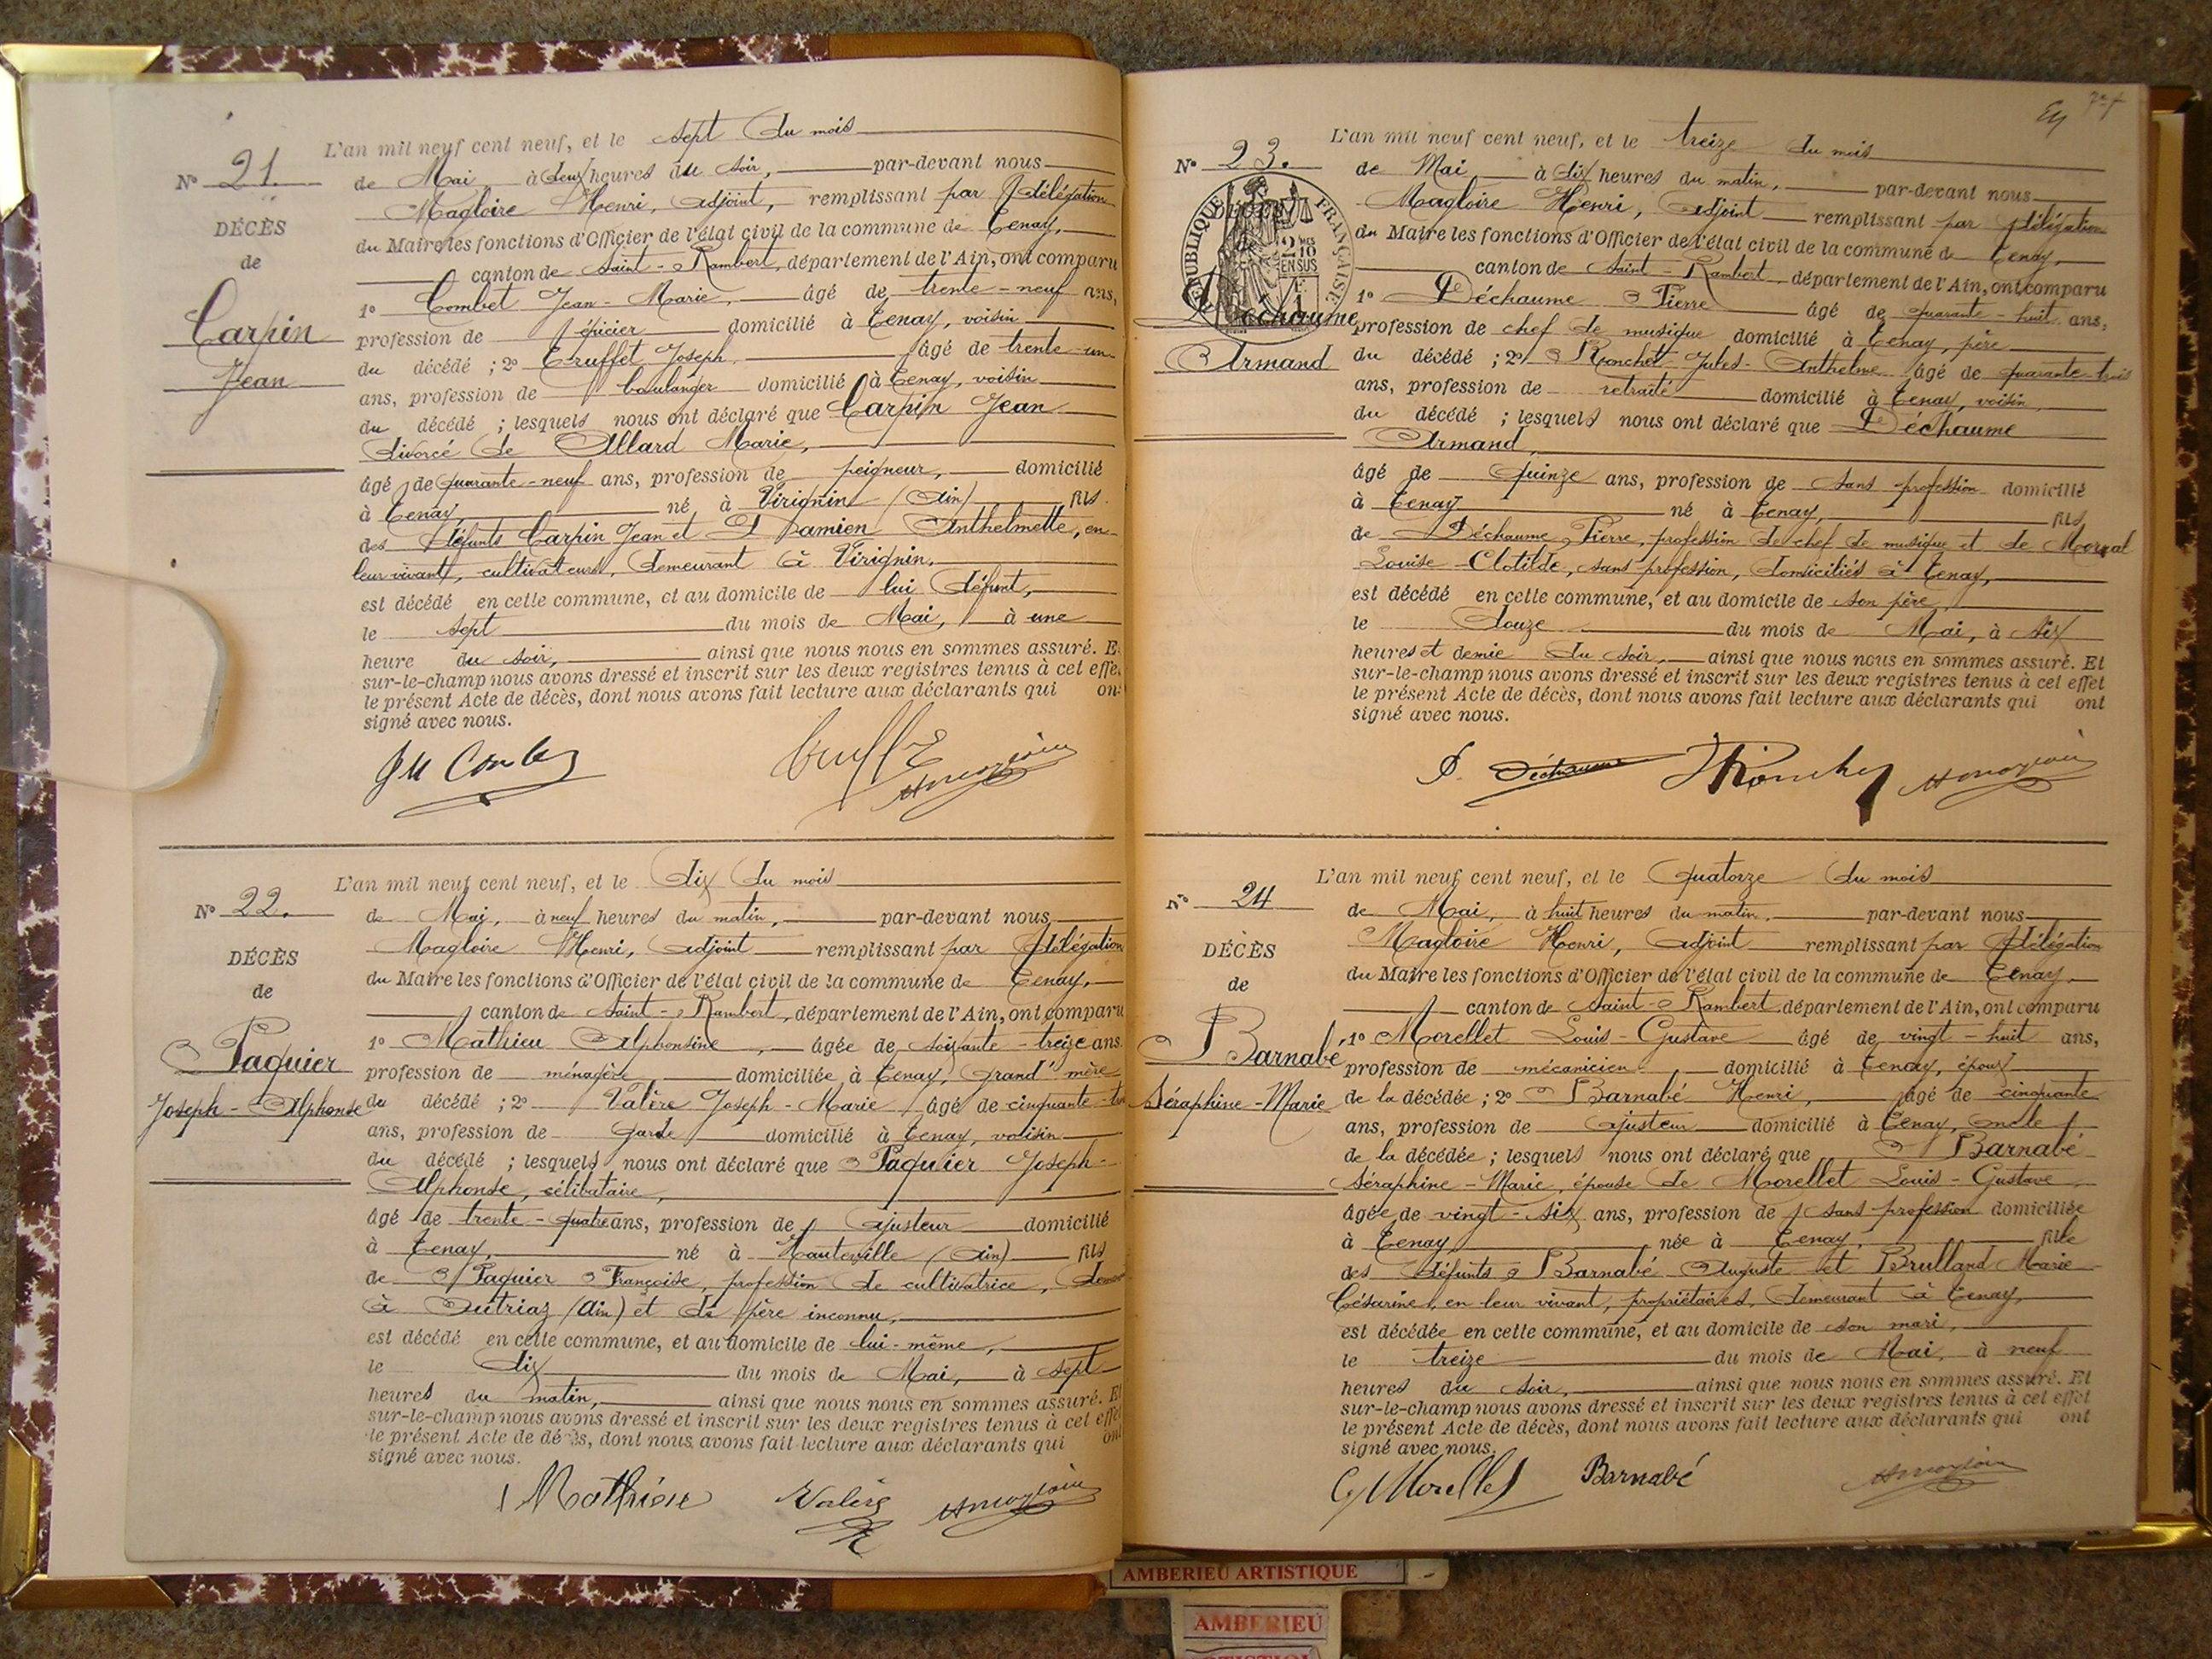 N° 21.
DÉCÈS
de
Carpin
Jean
L'an mil neuf cent neuf, et le sept du mois
de Mai à deux heures du soir, par-devant nous
Magloire Henri, adjoint, remplissant par délégation
du Maire les fonctions d'Officier de l'état civil de la commune de Tenay,
canton de Saint-Rambert, département de l'Ain, ont comparu
1° Combet Jean-Marie, âgé de trente-neuf ans,
profession de épicier domicilié à Tenay, voisin
du décédé ; 2° Truffet Joseph âgé de trente-un
ans, profession de boulanger domicilié à Tenay, voisin
du décédé ; lesquels nous ont déclaré que Carpin Jean
divorcé de Allard Marie,
âgé de quarante-neuf ans, profession de peigneur, domicilié
à Tenay, né à Virignin (Ain) fils
des défunts Carpin Jean et Damien Anthelmette, en
leur vivant, cultivateurs, demeurant à Virignin,
est décédé en cette commune, et au domicile de lui défunt,
le sept du mois de Mai, à une
heure du soir, ainsi que nous nous en sommes assuré. E
sur-le-champ nous avons dressé et inscrit sur les deux registres tenus à cet effe
le présent Acte de décès, dont nous avons fait lecture aux déclarants qui on
signé avec nous.
JM Combet
N° 22.
DÉCÈS
de
Paquier
Joseph-Alphonse
L'an mil neuf cent neuf, et le dix du mois
de Mai, à neuf heures du matin, par-devant nous
Magloire Henri, adjoint remplissant par délégation
du Maire les fonctions d'Officier de l'état civil de la commune de Tenay,
canton de Saint-Rambert, département de l'Ain, ont comparu
1° Mathieu Alphonsine, âgée de soixante-treize ans
profession de ménagère domiciliée à Tenay, Grand'mère
du décédé ; 2° Valère Joseph-Marie âgé de cinquante
ans, profession de Garde domicilié à Tenay, voisin
du décédé ; lesquels nous ont déclaré que Paquier Joseph-
Alphonse, célibataire,
âgé de trente-quatre ans, profession de Ajusteur domicilié
à Tenay, né à Hauteville (Ain) fils
de Paquier Françoise, profession de cultivatrice,
à Outriaz (Ain) et de père inconnu,
est décédé en cette commune, et au domicile de lui-même,
le dix du mois de Mai, à sept
heures du matin, ainsi que nous nous en sommes assuré. Et
sur-le-champ nous avons dressé et inscrit sur les deux registres tenus à cet effe
le présent Acte de décès, dont nous avons fait lecture aux déclarants qui ont
signé avec nous.
Mathieu Valère
N° 23.
RÉPUBLIQUE FRANÇAISE
Déchaume
Armand
L'an mil neuf cent neuf, et le treize du mois
de Mai à dix heures du matin, par-devant nous
Magloire Henri, adjoint remplissant par délégation
du Maire les fonctions d'Officier de l'état civil de la commune de Tenay,
canton de Saint-Rambert département de l'Ain, ont comparu
1° Déchaume Pierre âgé de quarante-huit ans,
profession de chef de musique domicilié à Tenay, père
du décédé ; 2° Ronchet Jules-Anthelme âgé de quarante-trois
ans, profession de retraité domicilié à Tenay, voisin
du décédé ; lesquels nous ont déclaré que Déchaume
Armand,
âgé de quinze ans, profession de sans profession domicilié
à Tenay né à Tenay, fils
de Déchaume Pierre, profession de chef de musique et de
Louise-Clotilde, sans profession, domiciliés à Tenay,
est décédé en cette commune, et au domicile de son père,
le douze du mois de Mai, à six
heures et demie du soir, ainsi que nous nous en sommes assuré. Et
sur-le-champ nous avons dressé et inscrit sur les deux registres tenus à cet effet
le présent Acte de décès, dont nous avons fait lecture aux déclarants qui ont
signé avec nous.
P. Déchaume
N° 24
DÉCÈS
de
Barnabé
Séraphine-Marie
L'an mil neuf cent neuf, et le Quatorze du mois
de Mai, à huit heures du matin, par-devant nous
Magloire Henri, adjoint remplissant par délégation
du Maire les fonctions d'Officier de l'état civil de la commune de Tenay,
canton de Saint-Rambert département de l'Ain, ont comparu
1° Morellet Louis-Gustave âgé de vingt-huit ans,
profession de mécanicien domicilié à Tenay, époux
de la décédée ; 2° Barnabé Henri, âgé de cinquante
ans, profession de Ajusteur domicilié à Tenay, oncle
de la décédée ; lesquels nous ont déclaré que Barnabé
Séraphine-Marie, épouse de Morellet Louis-Gustave
âgée de vingt-six ans, profession de sans profession domiciliée
à Tenay née à Tenay, fille
des défunts Barnabé Auguste et Brulland Marie
Césarine, en leur vivant, propriétaires, demeurant à Tenay,
est décédée en cette commune, et au domicile de son mari,
le treize du mois de Mai à neuf
heures du soir, ainsi que nous nous en sommes assuré. Et
sur-le-champ nous avons dressé et inscrit sur les deux registres tenus à cet effet
le présent Acte de décès, dont nous avons fait lecture aux déclarants qui ont
signé avec nous.
G Morellet Barnabé
AMBERIEU ARTISTIQUE
AMBERIEU